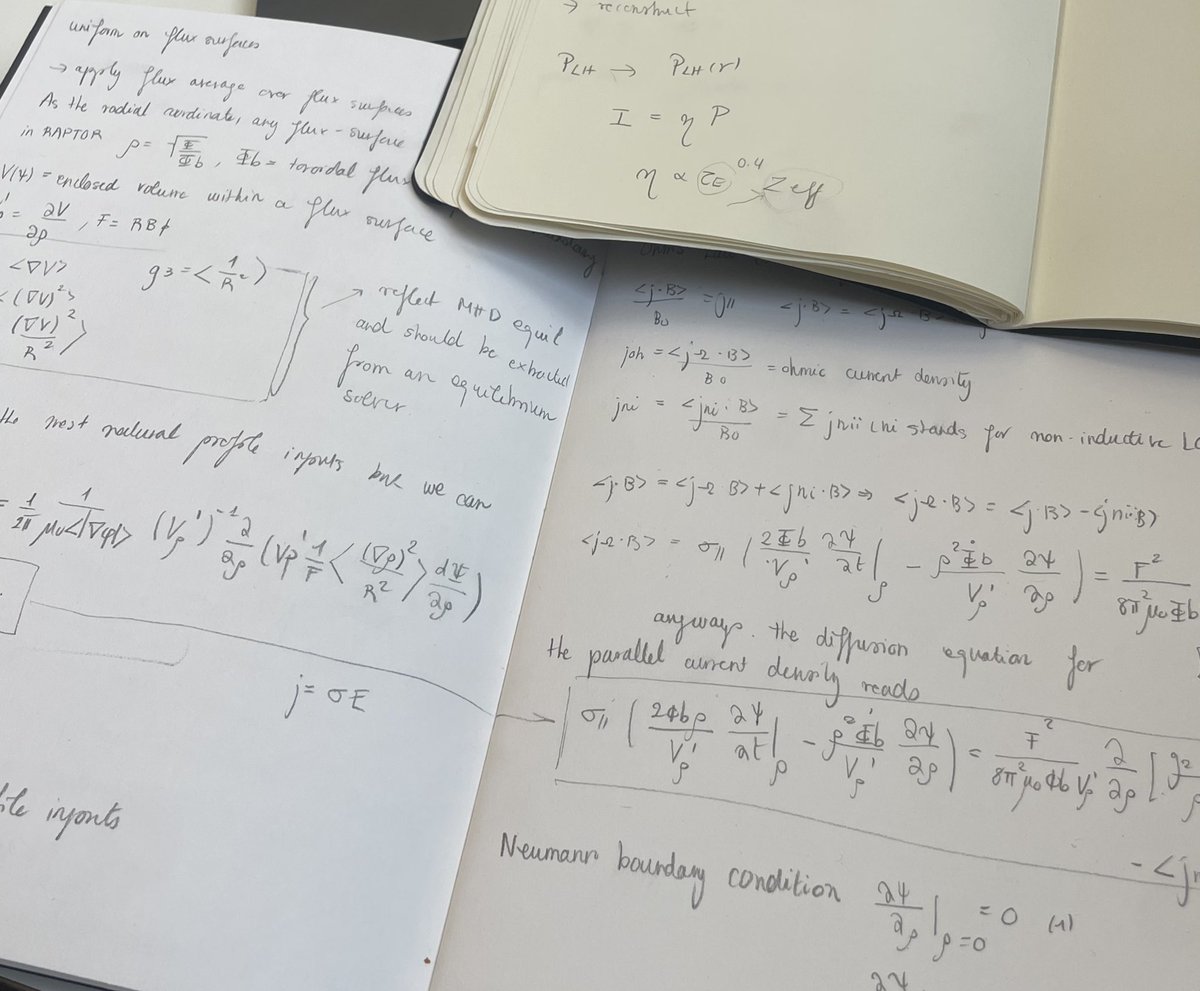 uniform on flux surfaces
→ apply flux average over flux surfaces
As the radial coordinate, any flux-surface
in RAPTOR ρ = √(Φ/Φb), Φb = toroidal flux
V(ψ) = enclosed volume within a flux surface
' = ∂V/∂ρ, F = RBϕ
<∇V>
g3 = <1/R²>
<(∇V)²>
(∇V)²/R²>
→ reflect MHD equil
and should be extracted
from an equilibrium
solver
the most natural profile inputs but we can
= 1/2π 1/μ0<|∇φ|> (Vρ')⁻¹ ∂/∂ρ (Vρ' 1/F <(∇ρ)²/R²> dΨ/∂ρ)
j = σE
file inputs
→ reconstruct
PLH → PLH(r)
I = η P
η ∝ τE^0.4 Zeff
boundary
<j·B>/B0 = j|| <j·B> = <jΩ·B>
joh = <jΩ·B>/B0 = ohmic current density
jni = <jni·B>/B0 = Σ jni i (ni stands for non-inductive
<j·B> = <jΩ·B> + <jni·B> ⇒ <jΩ·B> = <j·B> - <jni·B>
<jΩ·B> = σ|| (2Φb/Vρ' ∂ψ/∂t|ρ - ρ²Φ̇b/Vρ' ∂ψ/∂ρ) = F²/8π²μ0Φb
anyways. the diffusion equation for
the parallel current density reads
σ|| (2Φbρ/Vρ' ∂ψ/∂t|ρ - ρ²Φ̇b/Vρ' ∂ψ/∂ρ) = F²/8π²μ0ΦbVρ' ∂/∂ρ [g2/ρ
- <jn
Neumann boundary condition ∂ψ/∂ρ|ρ=0 = 0 (1)
∂ψ